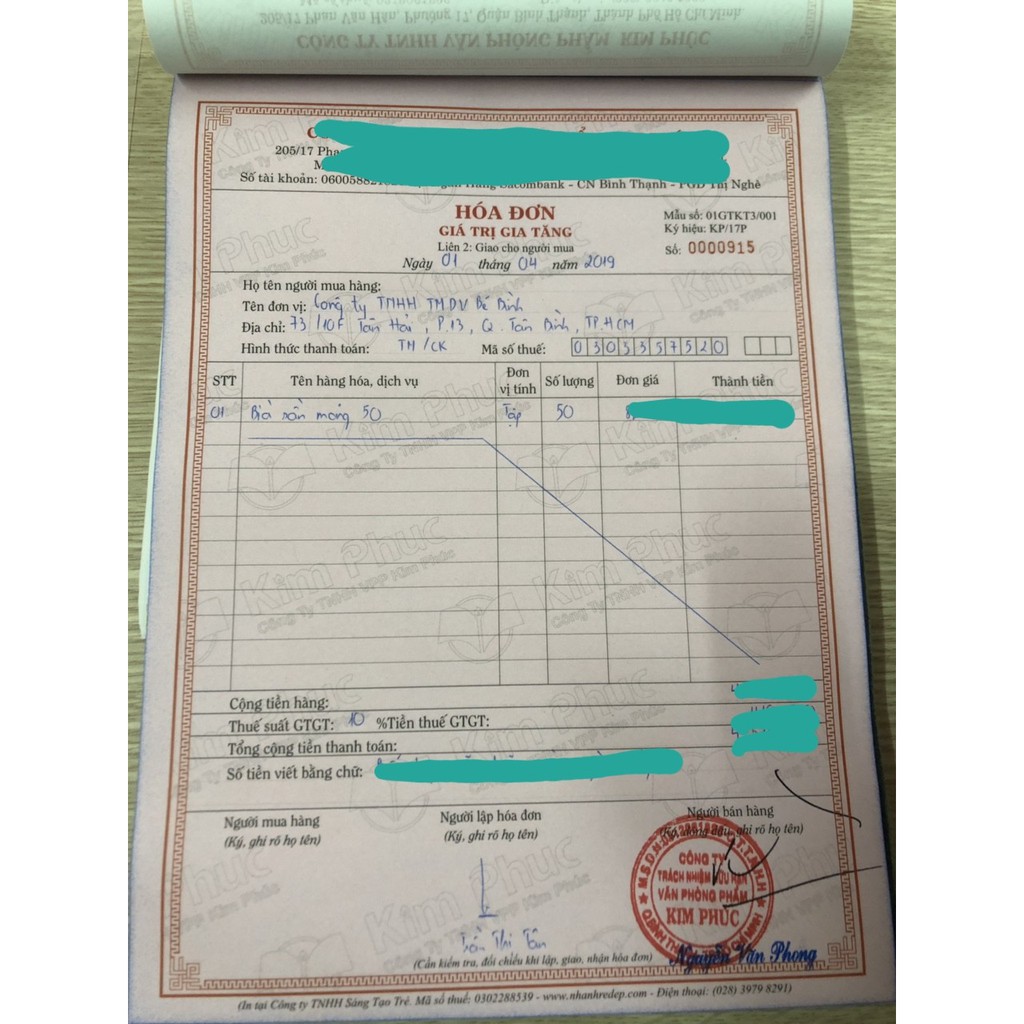 205/17 Phan Văn Hân, Phường 17, Quận Bình Thạnh, Thành Phố Hồ Chí Minh.
CÔNG TY TNHH VĂN PHÒNG PHẨM KIM PHÚC
205/17
Số tài khoản: Sacombank - CN Bình Thạnh - PGD Thị Nghè
HÓA ĐƠN
GIÁ TRỊ GIA TĂNG
Liên 2: Giao cho người mua
Ngày 01 tháng 04 năm 2019
Mẫu số: 01GTKT3/001
Ký hiệu: KP/17P
Số: 0000915
Họ tên người mua hàng:
Tên đơn vị: Công ty TNHH TMDV Bé Bình
Địa chỉ: 73/10F Tân Hải, P.13, Q. Tân Bình, TP.HCM
Hình thức thanh toán: TM/CK Mã số thuế: 0303357520
STT Tên hàng hóa, dịch vụ Đơn vị tính Số lượng Đơn giá Thành tiền
01 Bìa sần mỏng 50 Tập 50
Cộng tiền hàng:
Thuế suất GTGT: 10 % Tiền thuế GTGT:
Tổng cộng tiền thanh toán:
Số tiền viết bằng chữ:
Người mua hàng
(Ký, ghi rõ họ tên)
Người lập hóa đơn
(Ký, ghi rõ họ tên)
Người bán hàng
(Ký, đóng dấu, ghi rõ họ tên)
CÔNG TY
TRÁCH NHIỆM HỮU HẠN
VĂN PHÒNG PHẨM
KIM PHÚC
Trần Thi Tân
Nguyễn Văn Phong
(Cần kiểm tra, đối chiếu khi lập, giao, nhận hóa đơn)
(In tại Công ty TNHH Sáng Tạo Trẻ. Mã số thuế: 0302288539 - www.nhanhredep.com - Điện thoại: (028) 3979 8291)
Kim Phúc
Công Ty TNHH VPP Kim Phúc